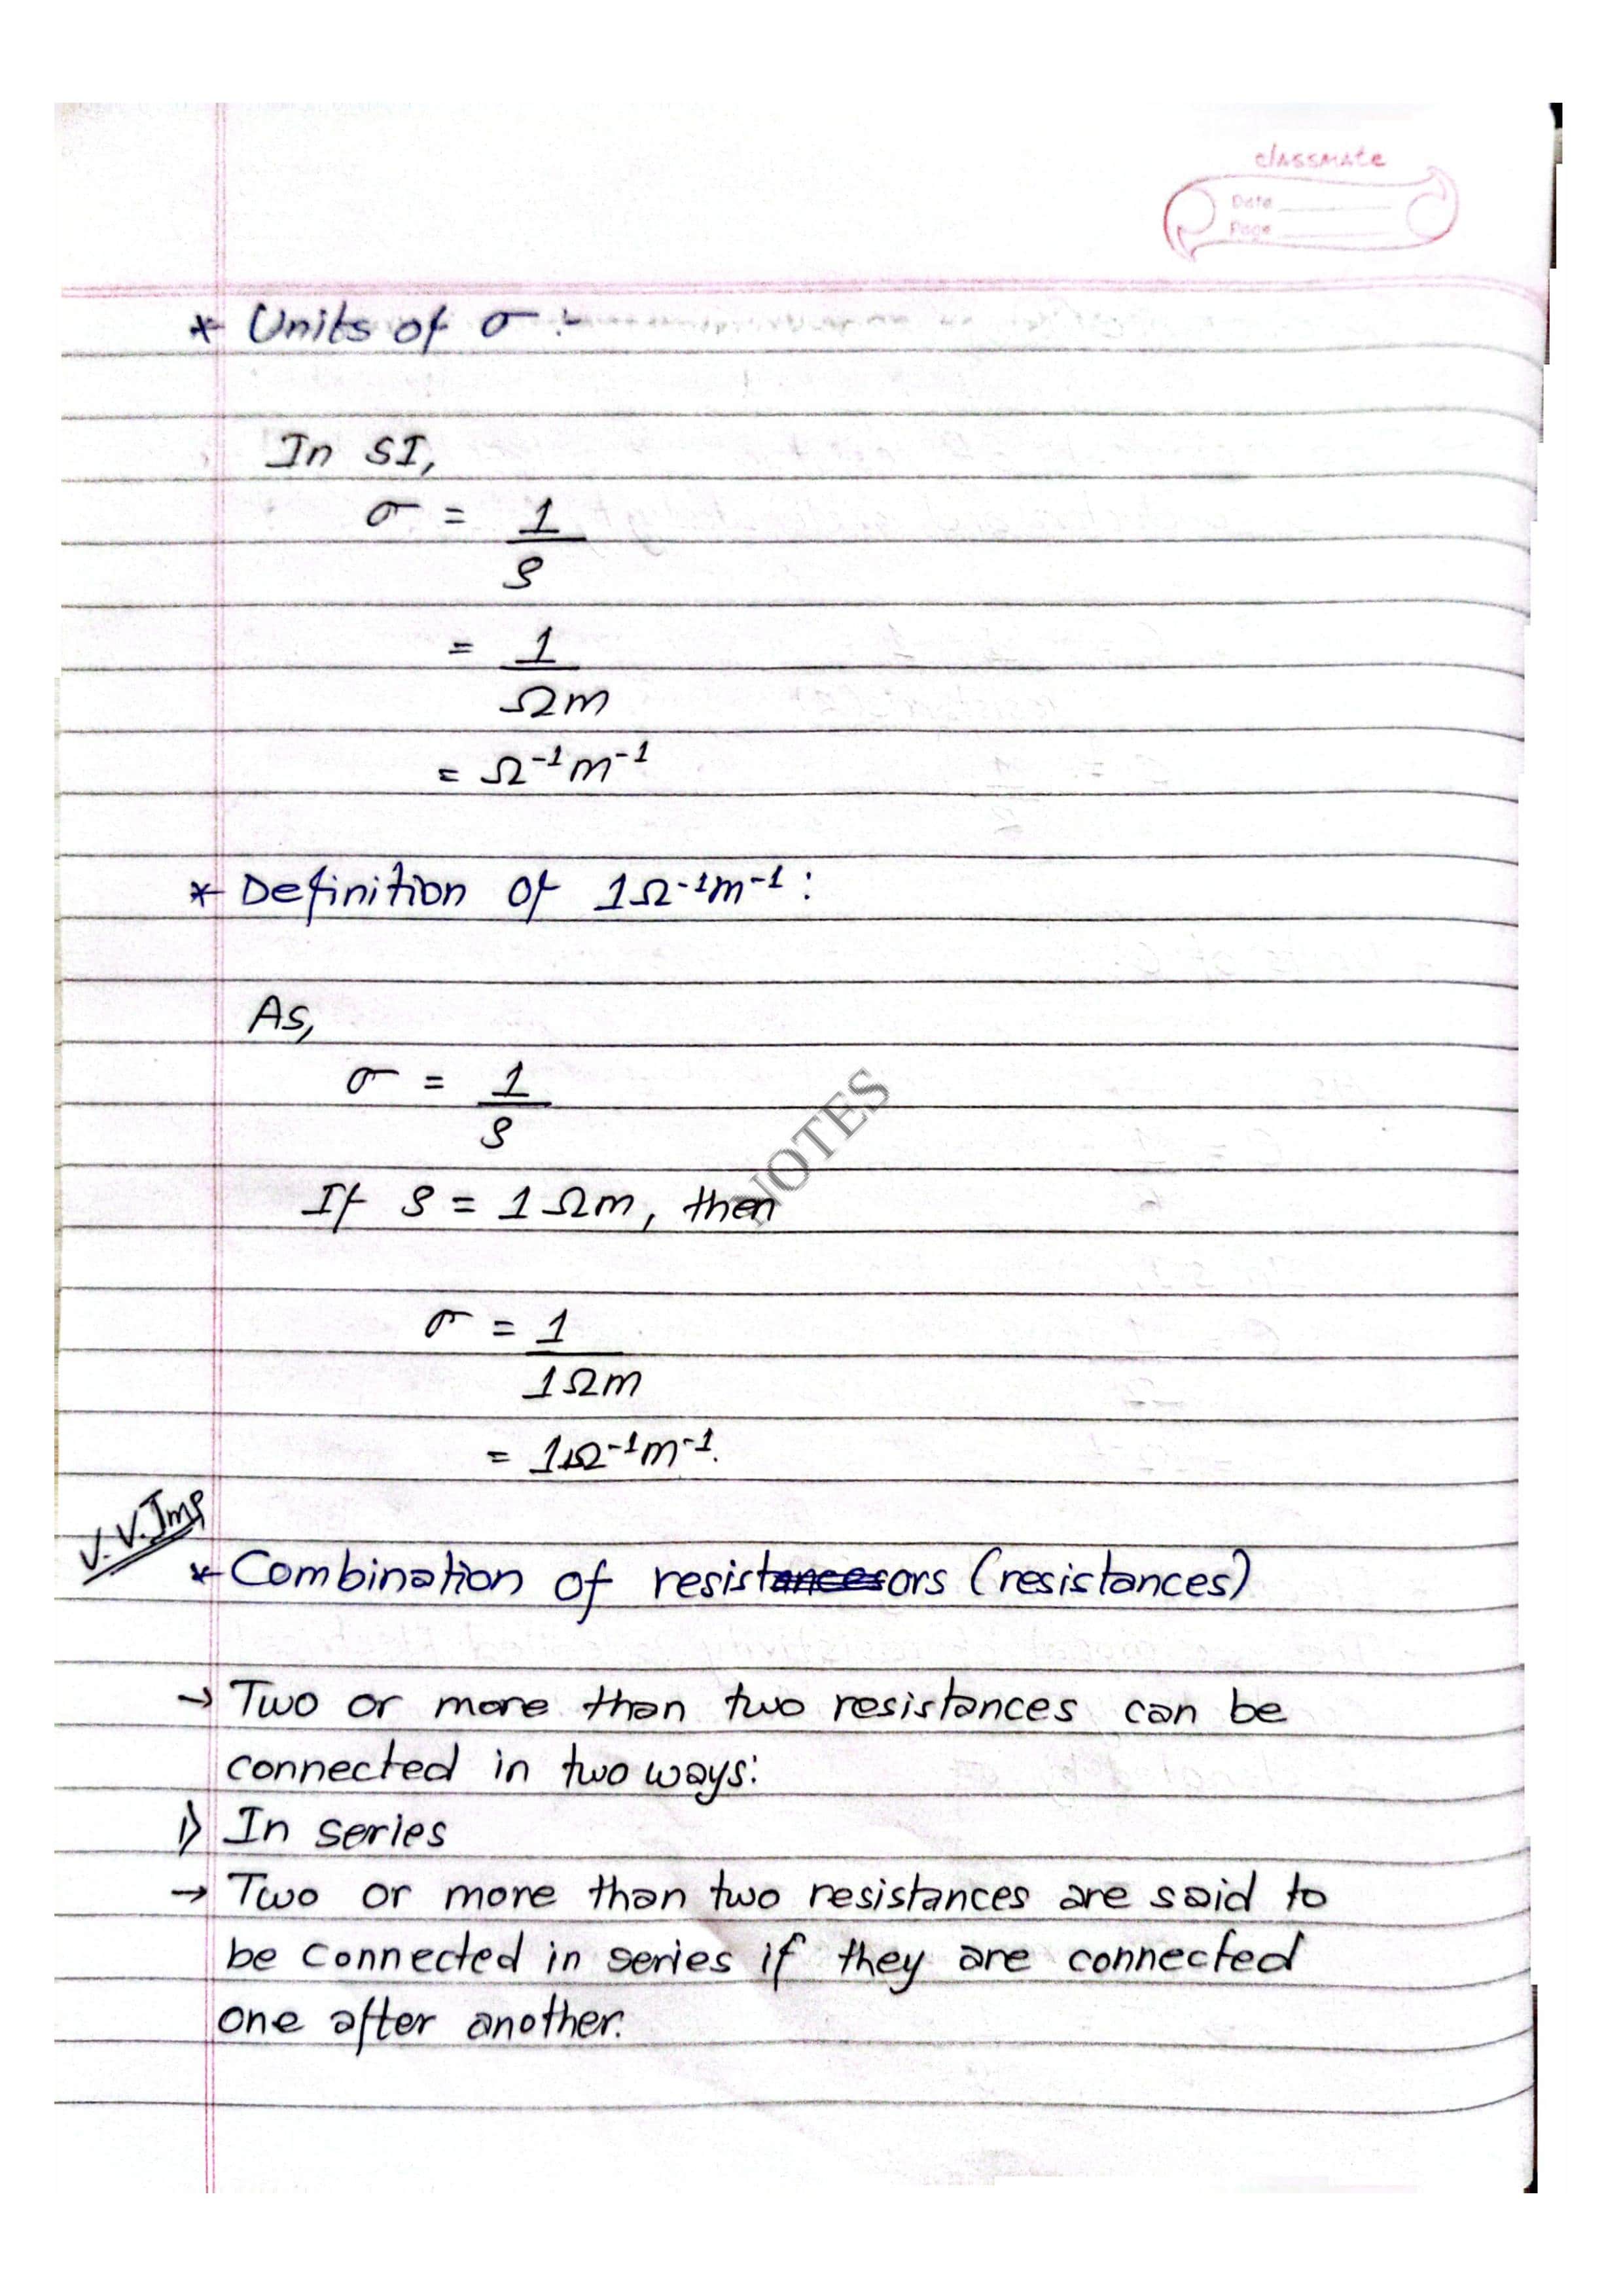 classmate
Date
Page
* Units of σ :-
In SI,
σ = 1
ρ
= 1
Ωm
= Ω⁻¹m⁻¹
* Definition of 1Ω⁻¹m⁻¹ :
As,
σ = 1
ρ
If ρ = 1 Ωm, then
NOTES
σ = 1
1Ωm
= 1Ω⁻¹m⁻¹.
V.V.Imp
* Combination of resistors (resistances)
→ Two or more than two resistances can be
connected in two ways:
i) In series
→ Two or more than two resistances are said to
be connected in series if they are connected
one after another.